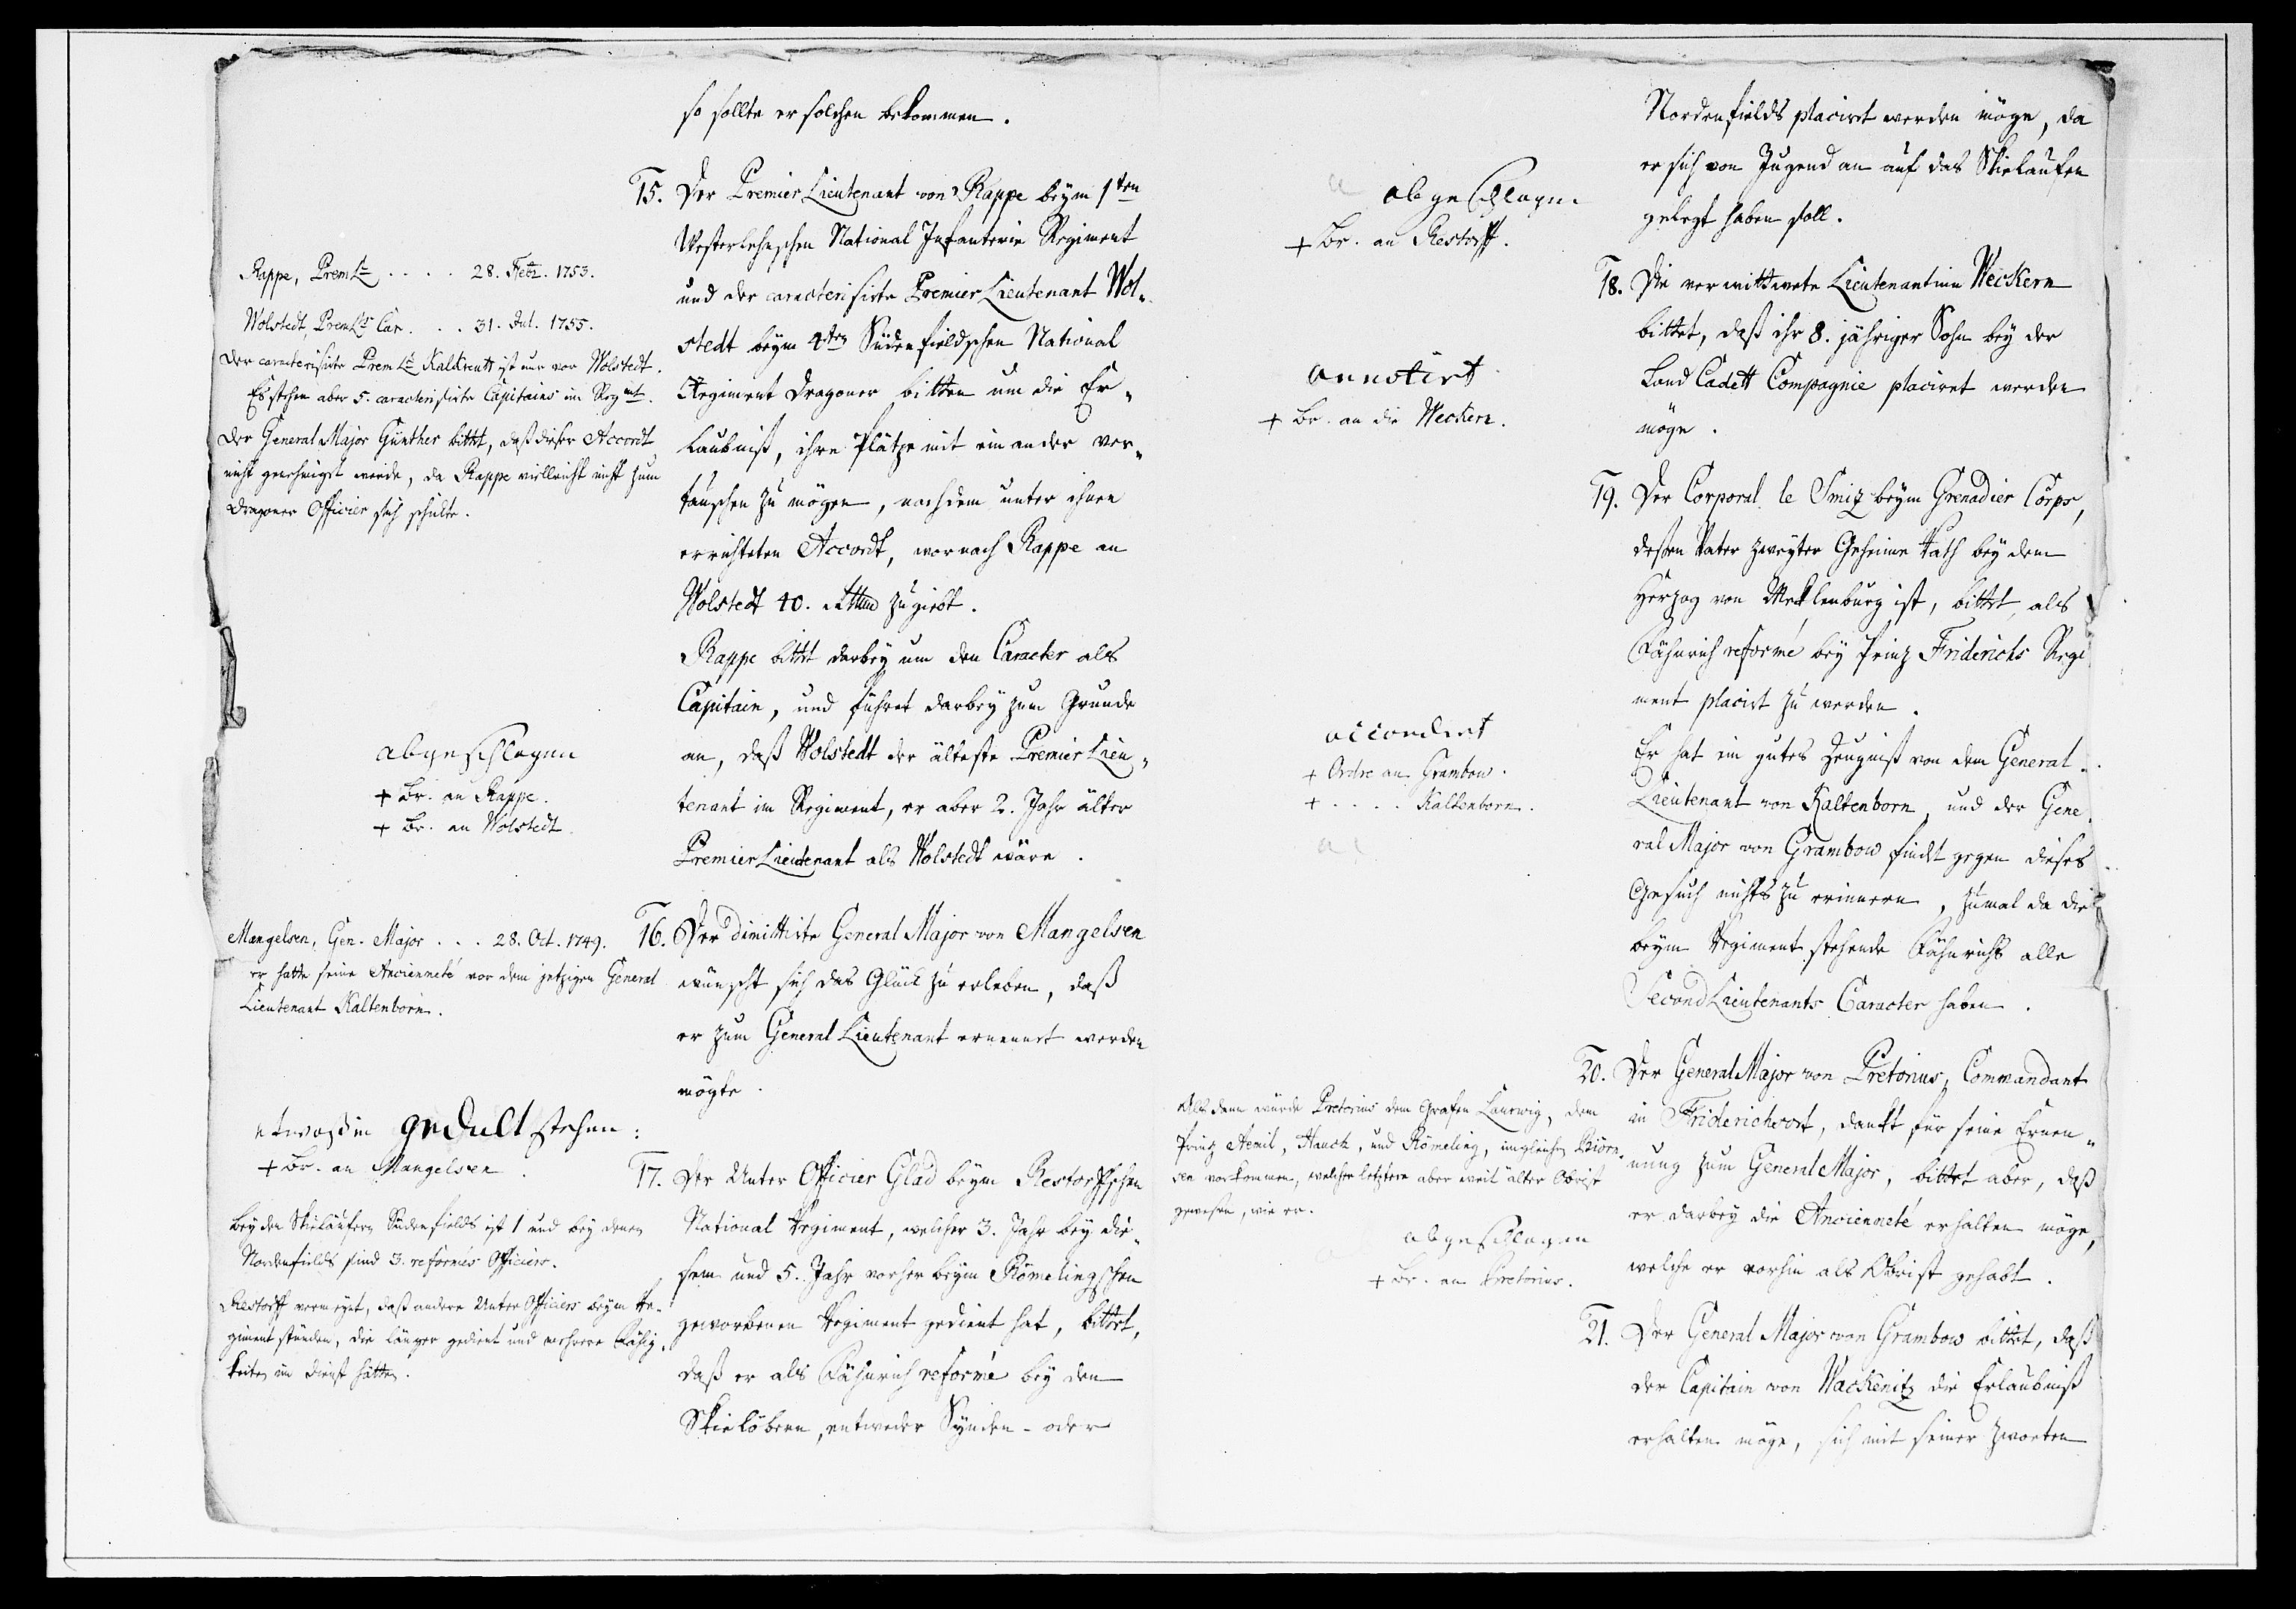 so sollte er solchen bekommen.
15. Der Premier Lieutenant von Rappe beym 1ten
Westerlehnschen National Infanterie Regiment
und der caracterisirte Premier Lieutenant Wol„
stedt beym 4ten Südenfieldschen National
Regiment Dragoner bitten um die Er„
laubniß, ihre Plätze mit einander ver„
tauschen zu mögen, nach dem unter ihnen
errichteten Accordt, wornach Rappe an
Wolstedt 40. zugiebt.
Rappe bittet darbey um den Caracter als
Capitain, und führet darbey zum Grunde
an, daß Wolstedt der älteste Premier Lieu„
tenant im Regiment, er aber 2. Jahr älter
Premier Lieutenant als Wolstedt wäre.
Rappe, Prem Lt . . . . 28. Febr. 1753.
Wolstedt, Prem Lts Car. . . . 31. Jul. 1755.
Der caracterisirte Prem Lt Kalkreutz ist nur vor Wolstedt.
Es stehen aber 5. caracterisirte Capitains im Regmt.
Der General Major Günther bittet, daß dieser Accordt
nicht genehmigt werde, da Rappe vielleicht nicht zum
Dragoner Officier sich schickte.
abgeschlagen
+ Br. an Rappe.
+ Br. an Wolstedt.
16. Der dimittirte General Major von Mangelsen
wünscht sich das Glück zu erleben, daß
er zum General Lieutenant ernennet werden
mögte.
Mangelsen, Gen. Major . . . 28. Oct. 1749.
er hatte seine Ancienneté vor dem jetzigen General
Lieutenant Kaltenborn.
etwaß in gedult stehen:
+ Br. an Mangelsen.
17. Der Unter Officier Glad beym Restorffschen
National Regiment, welcher 3. Jahr bey die„
sem und 5. Jahr vorher beym Römelingschen
geworbenen Regiment gedient hat, bittet,
daß er als Fähnrich reformé bey den
Skielöbern, entweder Synden- oder
Bey den Skieläufern Südenfields ist 1 und bey denen
Nordenfields sind 3. reformés Officiers.
Restorff vermeynt, daß andere Unter Officiers beym Re„
giment stünden, die länger gedient und mehrere Fähig„
keiten im Dienst hätten.
Nordenfields placiret werden möge, da
er sich von Jugend an auf das Skielaufen
gelegt haben soll.
abgeschlagen
+ Br. an Restorff.
18. Die verwittwete Lieutenantinn Weckern
bittet, daß ihr 8. jähriger Sohn bey der
Land Cadett Compagnie placiret werden
möge.
annotirt
+ Br. an die Weckern.
19. Der Corporal le Smiz beym Grenadier Corps,
deßen Vater zweyter Geheime Rath bey dem
Herzog von Mecklenburg ist, bittet, als
Fähnrich reformé bey Prinz Friderichs Regi
ment placirt zu werden.
Er hat ein gutes Zeugniß von dem General-
Lieutenant von Kaltenborn, und der Gene
ral Major von Grambow findet gegen dieses
Gesuch nichts zu erinnern, zumal da die
beym Regiment stehende Fähnrichs alle
Second Lieutenants Caracter haben.
accordirt
+ Ordre an Grambow.
+ . . . . Kaltenborn.
20. Der General Major von Pretorius, Commandant
in Friderichsort, dankt für seine Ernen„
nung zum General Major, bittet aber, daß
er darbey die Ancienneté erhalten möge,
welche er vorhin als Obrist gehabt.
Als dann würde Pretorius dem Grafen Laurwig, dem
Prinz Aemil, Hauch, und Römeling, imgleichen Biörn„
sen vorkommen, welcher letztere aber weit älter Obrist
gewesen, wie er.
abgeschlagen
+ Br. an Pretorius.
21. Der General Major von Grambow bittet, daß
der Capitain von Wackenitz die Erlaubniß
erhalten möge, sich mit seiner zweeten